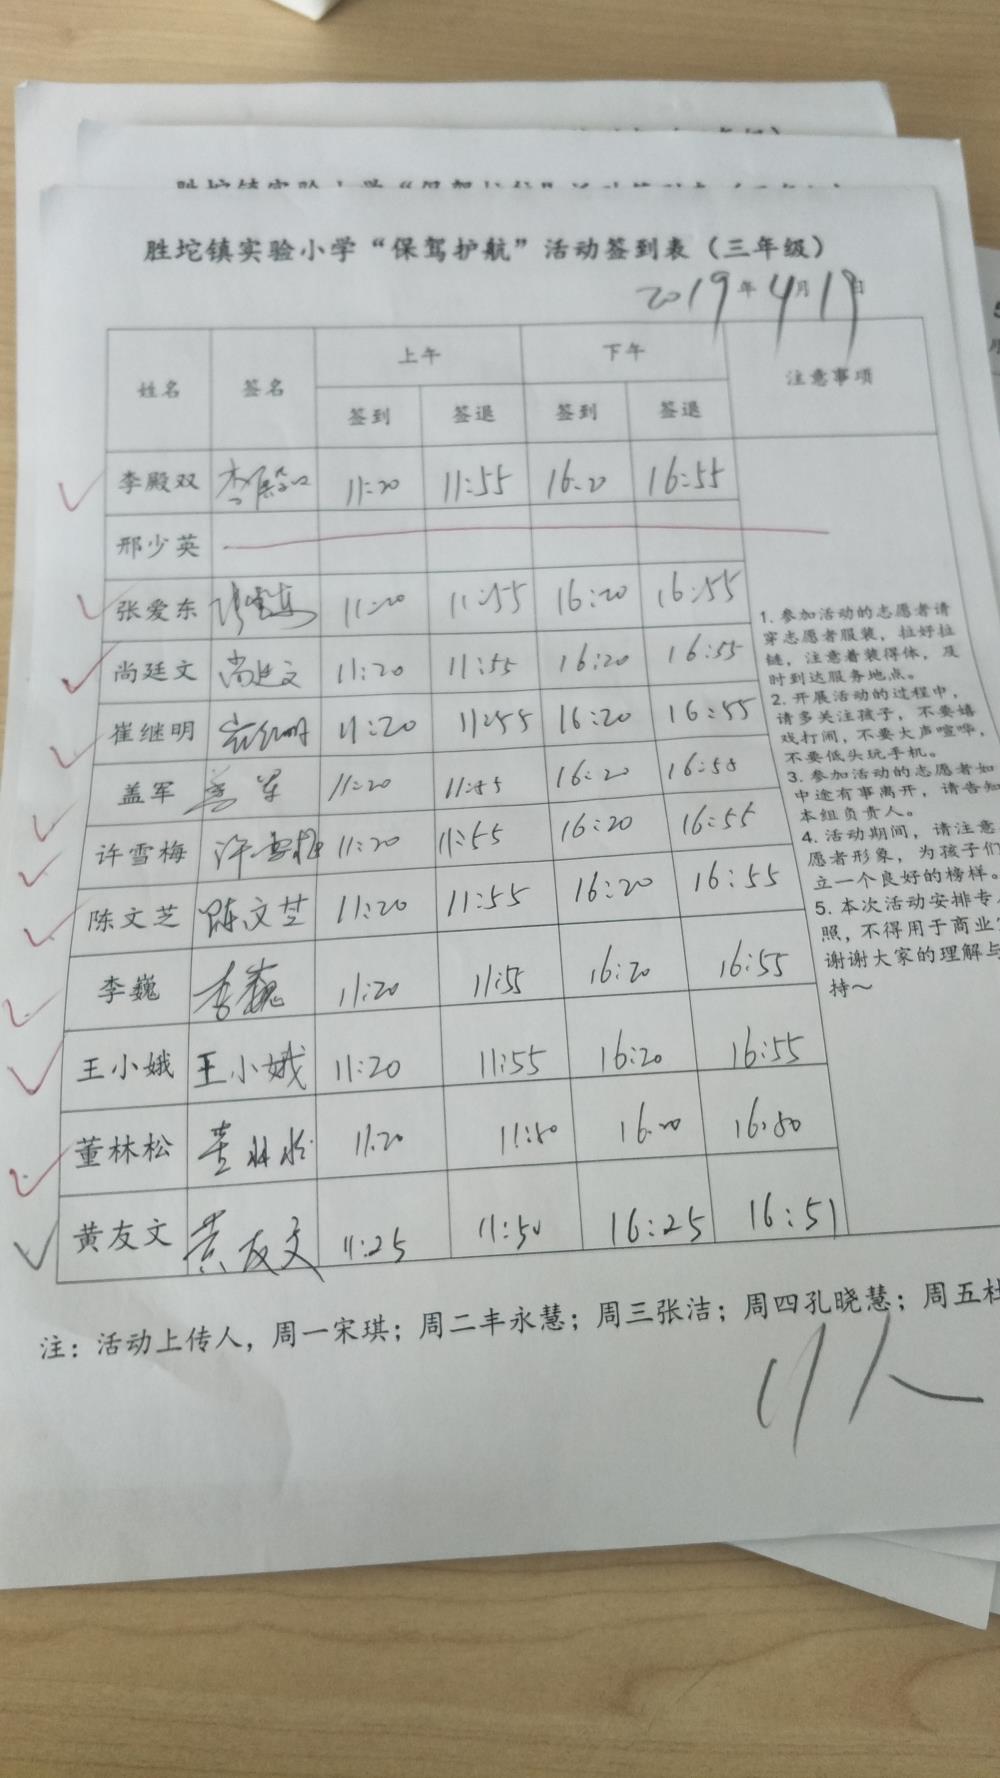 胜坨镇实验小学“保驾护航”活动签到表（三年级）
2019年4月19日
姓名 签名 上午 下午 注意事项
签到 签退 签到 签退
李殿双 李殿双 11:20 11:55 16:20 16:55
邢少英
张爱东 张爱东 11:20 11:55 16:20 16:55
尚廷文 尚廷文 11:20 11:55 16:20 16:55
崔继明 崔继明 11:20 11:55 16:20 16:55
盖军 盖军 11:20 11:55 16:20 16:55
许雪梅 许雪梅 11:20 11:55 16:20 16:55
陈文芝 陈文芝 11:20 11:55 16:20 16:55
李巍 李巍 11:20 11:55 16:20 16:55
王小娥 王小娥 11:20 11:55 16:20 16:55
董林松 董林松 11:20 11:50 16:20 16:50
黄友文 黄友文 11:25 11:50 16:25 16:51
1. 参加活动的志愿者请
穿志愿者服装，拉好拉
链，注意着装得体，及
时到达服务地点。
2. 开展活动的过程中，
请多关注孩子，不要嬉
戏打闹，不要大声喧哗，
不要低头玩手机。
3. 参加活动的志愿者如
中途有事离开，请告知
本组负责人。
4. 活动期间，请注意
愿者形象，为孩子们
立一个良好的榜样。
5. 本次活动安排专
照，不得用于商业
谢谢大家的理解与
持～
注：活动上传人，周一宋琪；周二丰永慧；周三张洁；周四孔晓慧；周五杜
11人